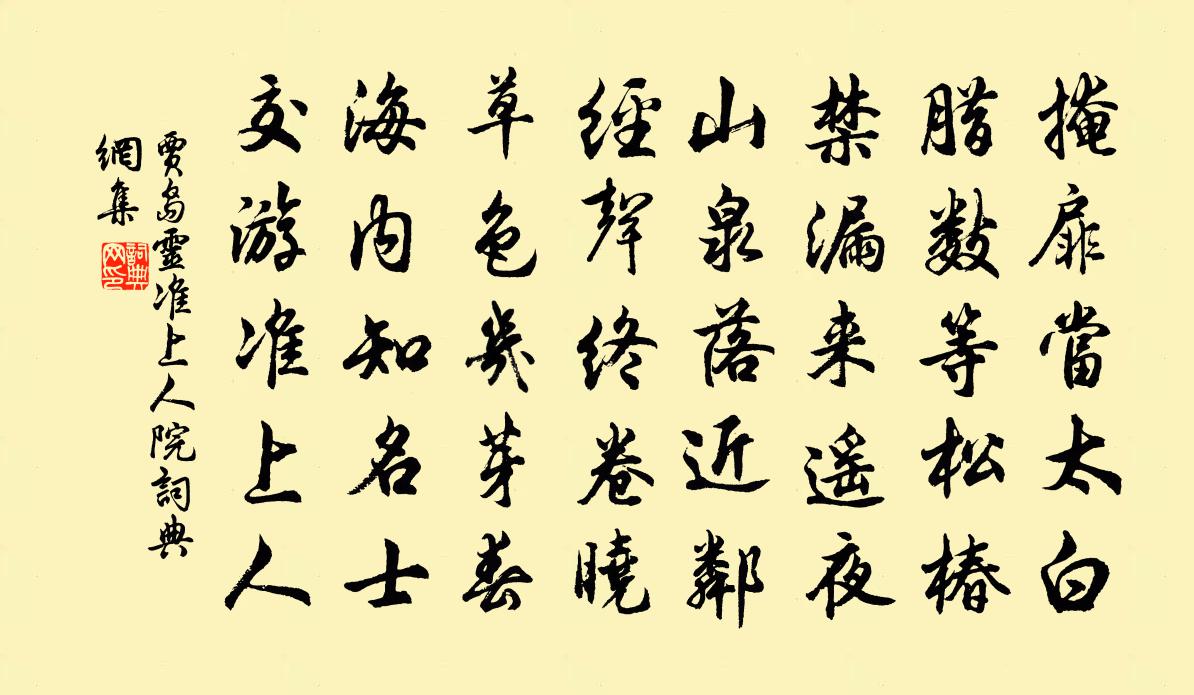 掩扉當太白
腊數等松椿
禁漏来遥夜
山泉落近鄰
經聲終卷曉
草色幾芽春
海內知名士
交游准上人
賈島靈准上人院詞典
網集
詞典網印